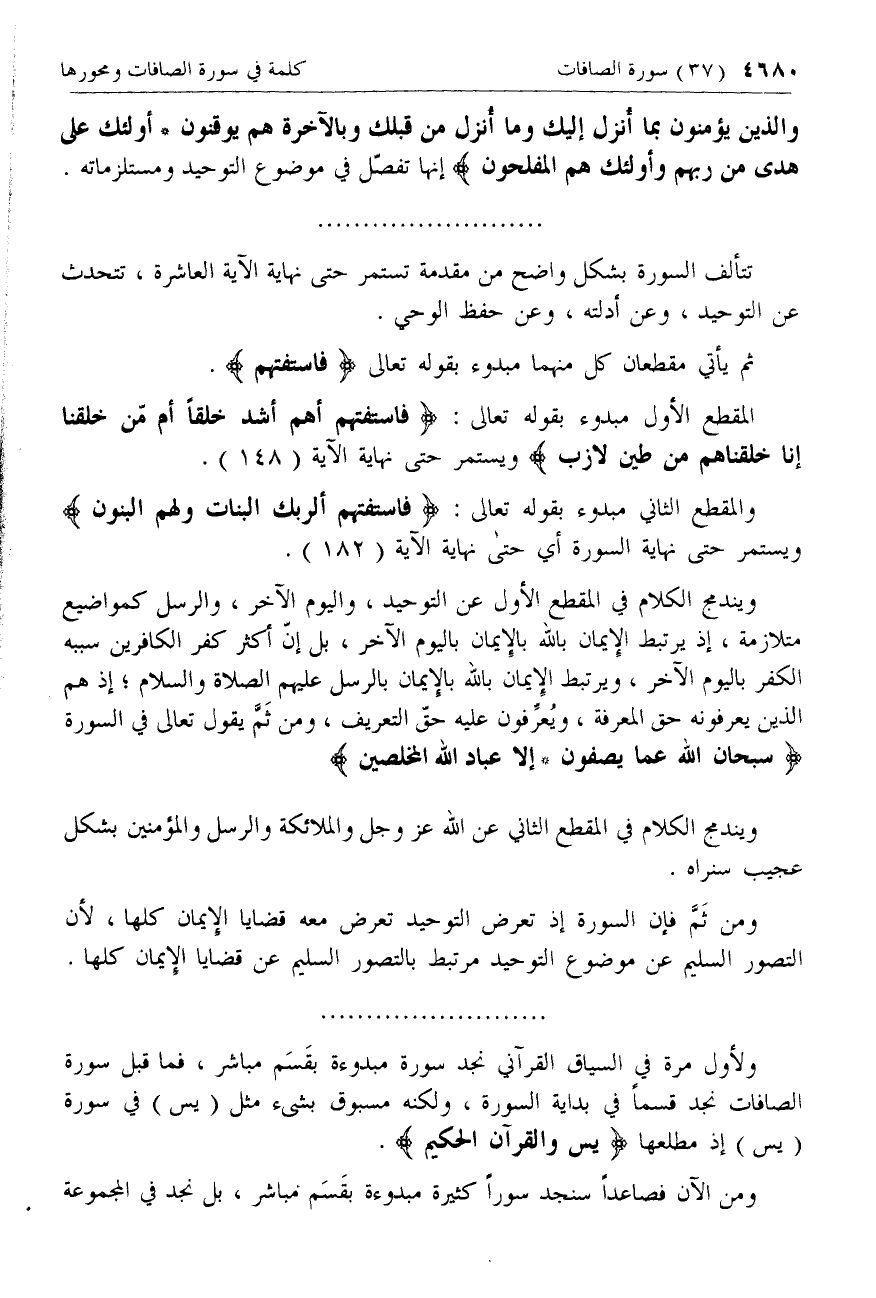 ٤٦٨٠ (٣٧) سورة الصافات كلمة في سورة الصافات ومحورها
والذين يؤمنون بما أُنزل إليك وما أُنزل من قبلك وبالآخرة هم يوقنون * أولئك على
هدى من ربهم وأولئك هم المفلحون ﴾ إنها تفصّل في موضوع التوحيد ومستلزماته .
.........................
تتألف السورة بشكل واضح من مقدمة تستمر حتى نهاية الآية العاشرة ، تتحدث
عن التوحيد ، وعن أدلته ، وعن حفظ الوحي .
ثم يأتي مقطعان كل منهما مبدوء بقوله تعالى ﴿ فاستفتهم ﴾ .
المقطع الأول مبدوء بقوله تعالى : ﴿ فاستفتهم أهم أشد خلقاً أم مّن خلقنا
إنا خلقناهم من طين لازب ﴾ ويستمر حتى نهاية الآية ( ١٤٨ ) .
والمقطع الثاني مبدوء بقوله تعالى : ﴿ فاستفتهم ألربك البنات ولهم البنون ﴾
ويستمر حتى نهاية السورة أي حتىٰ نهاية الآية ( ١٨٢ ) .
ويندمج الكلام في المقطع الأول عن التوحيد ، واليوم الآخر ، والرسل كمواضيع
متلازمة ، إذ يرتبط الإِيمان بالله بالإِيمان باليوم الآخر ، بل إنّ أكثر كفر الكافرين سببه
الكفر باليوم الآخر ، ويرتبط الإِيمان بالله بالإِيمان بالرسل عليهم الصلاة والسلام ؛ إذ هم
الذين يعرفونه حق المعرفة ، ويُعرِّفون عليه حقّ التعريف ، ومن ثَمَّ يقول تعالى في السورة
﴿ سبحان الله عما يصفون * إلا عباد الله المخلصين ﴾
ويندمج الكلام في المقطع الثاني عن الله عز وجل والملائكة والرسل والمؤمنين بشكل
عجيب سنراه .
ومن ثَمَّ فإن السورة إذ تعرض التوحيد تعرض معه قضايا الإِيمان كلها ، لأن
التصور السليم عن موضوع التوحيد مرتبط بالتصور السليم عن قضايا الإِيمان كلها .
.........................
ولأول مرة في السياق القرآني نجد سورة مبدوءة بقَسَم مباشر ، فما قبل سورة
الصافات نجد قسماً في بداية السورة ، ولكنه مسبوق بشىء مثل ( يس ) في سورة
( يس ) إذ مطلعها ﴿ يس والقرآن الحكيم ﴾ .
ومن الآن فصاعداً سنجد سوراً كثيرة مبدوءة بقَسَم مباشر ، بل نجد في المجموعة